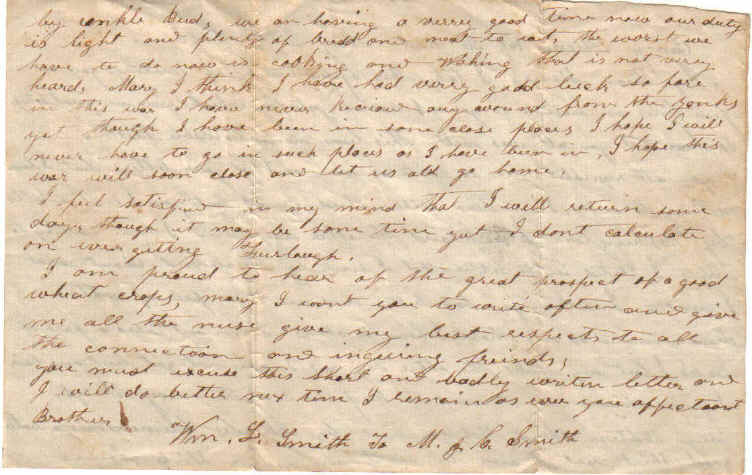 by conkle Bud, we an having a verry good time now our duty
is light and plenty of bred and meat to eat, the worst we
have to do now is cooking and that is not verry
heard, Mary I think I have had verry good luck so fare
in this war I have never any wound from the yenks
yet though I have been in some close places I hope I will
never have to go in such places as I have been in, I hope this
war will soon close and let us all go home.
I feel satisfied in my mind that I will return some
day, though it may be some time yet I dont calculate
on ever giting Furlough.
I am proud to hear of the great prospect of a good
wheat crops, mary I want you to write often and give
me all the nuse give my best respects to all
the connection and inquiring freinds,
you must excuse this short and badly writen letter and
I will do better nex time I remain as ever your affectoont
Brother
Wm. L. Smith To M. J. C. Smith